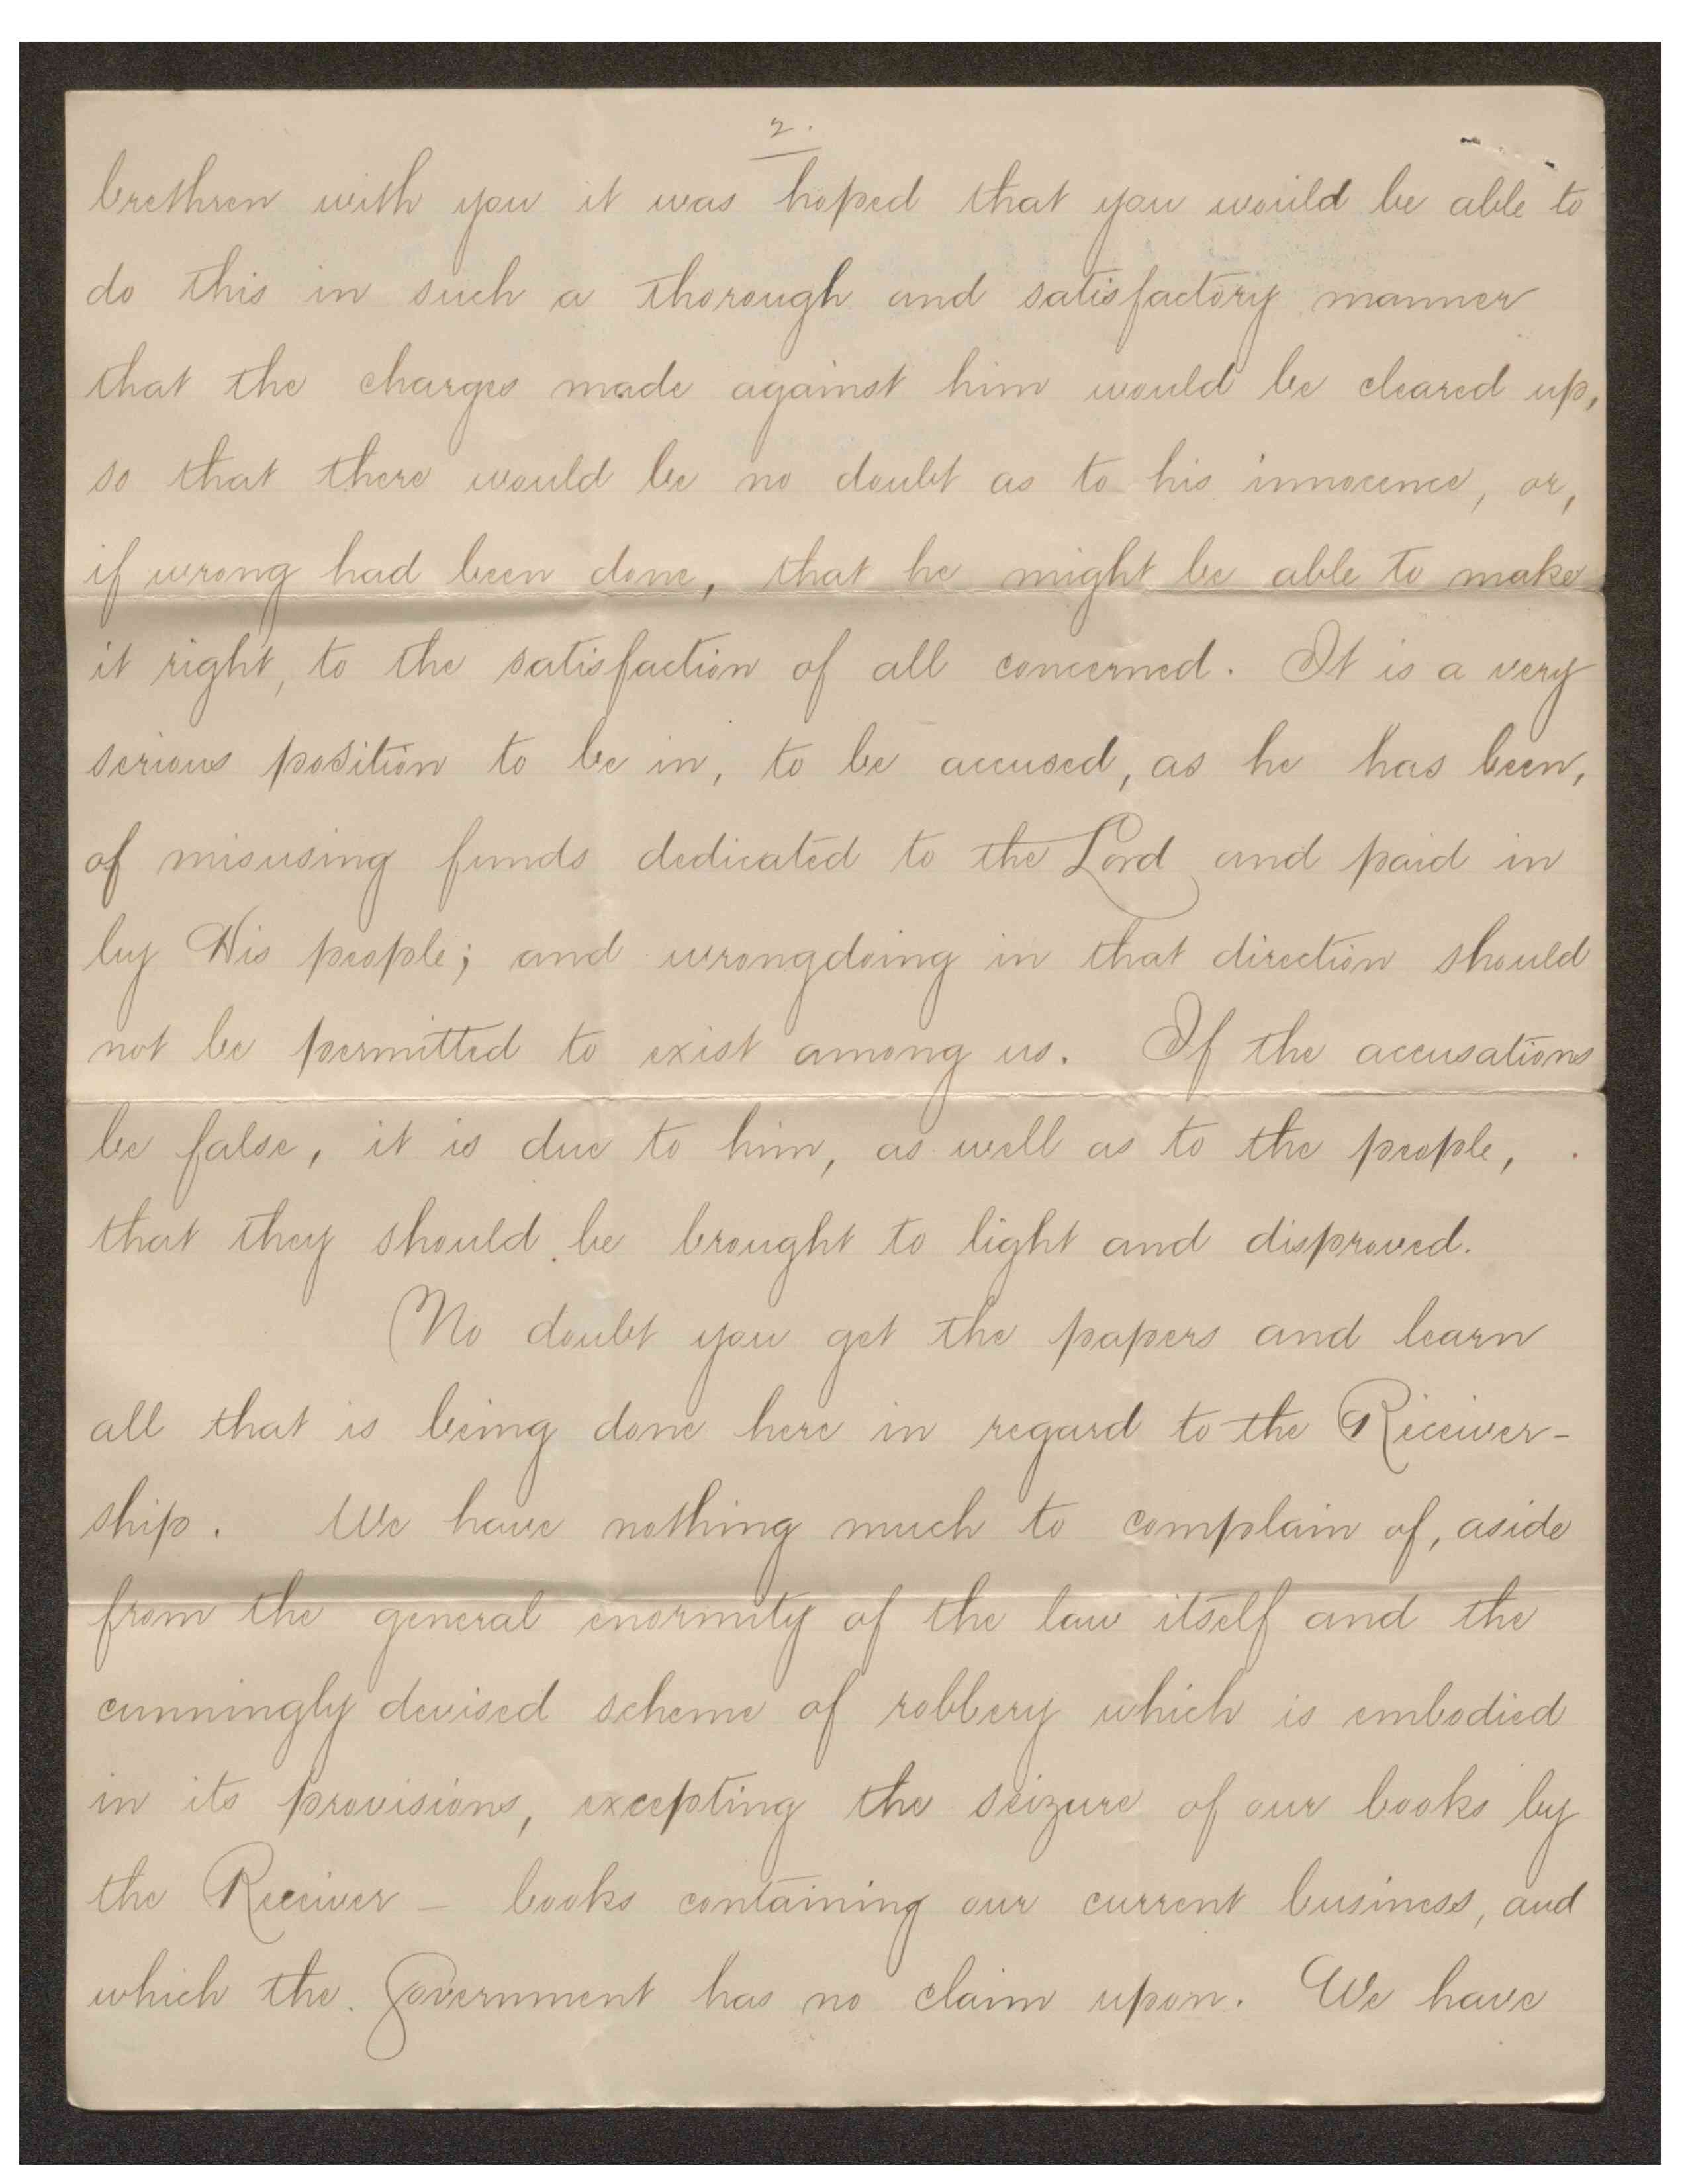 2.
brethren with you it was hoped that you would be able to
do this in such a thorough and satisfactory manner
that the charges made against him would be cleared up,
so that there would be no doubt as to his innocence, or,
if wrong had been done, that he might be able to make
it right, to the satisfaction of all concerned. It is a very
serious position to be in, to be accused, as he has been,
of misusing funds dedicated to the Lord and paid in
by His people; and wrongdoing in that direction should
not be permitted to exist among us. If the accusations
be false, it is due to him, as well as to the people,
that they should be brought to light and disproved.
No doubt you get the papers and learn
all that is being done here in regard to the Riceiver-
ship. We have nothing much to complain of, aside
from the general enormity of the law itself and the
cunningly devised scheme of robbery which is embodied
in its provisions, excepting the seizure of our books by
the Receiver - books containing our current business, and
which the Government has no claim upon. We have